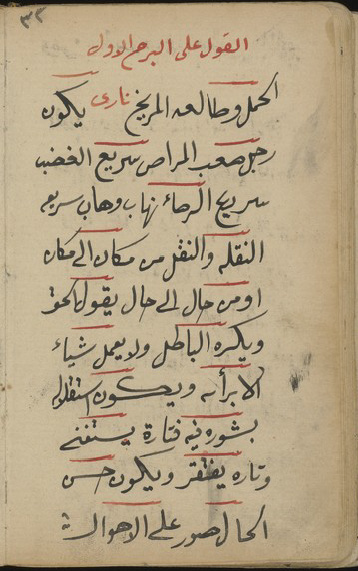 ٣٢
القول على البرج الاول
الحمل وطالعه المريخ ناري يكون
رجل صعب المراص سريع الغضب
سريع الرضاء نهاب وهاب سريع
النقله والنقل من مكان الى مكان
او من حال الى حال يقول الحق
ويكره الباطل ولا يعمل شياء
الا برأيه ويكون
فتارة يستغني
وتاره يفتقر ويكون حسن
الحال صور على الاحوال